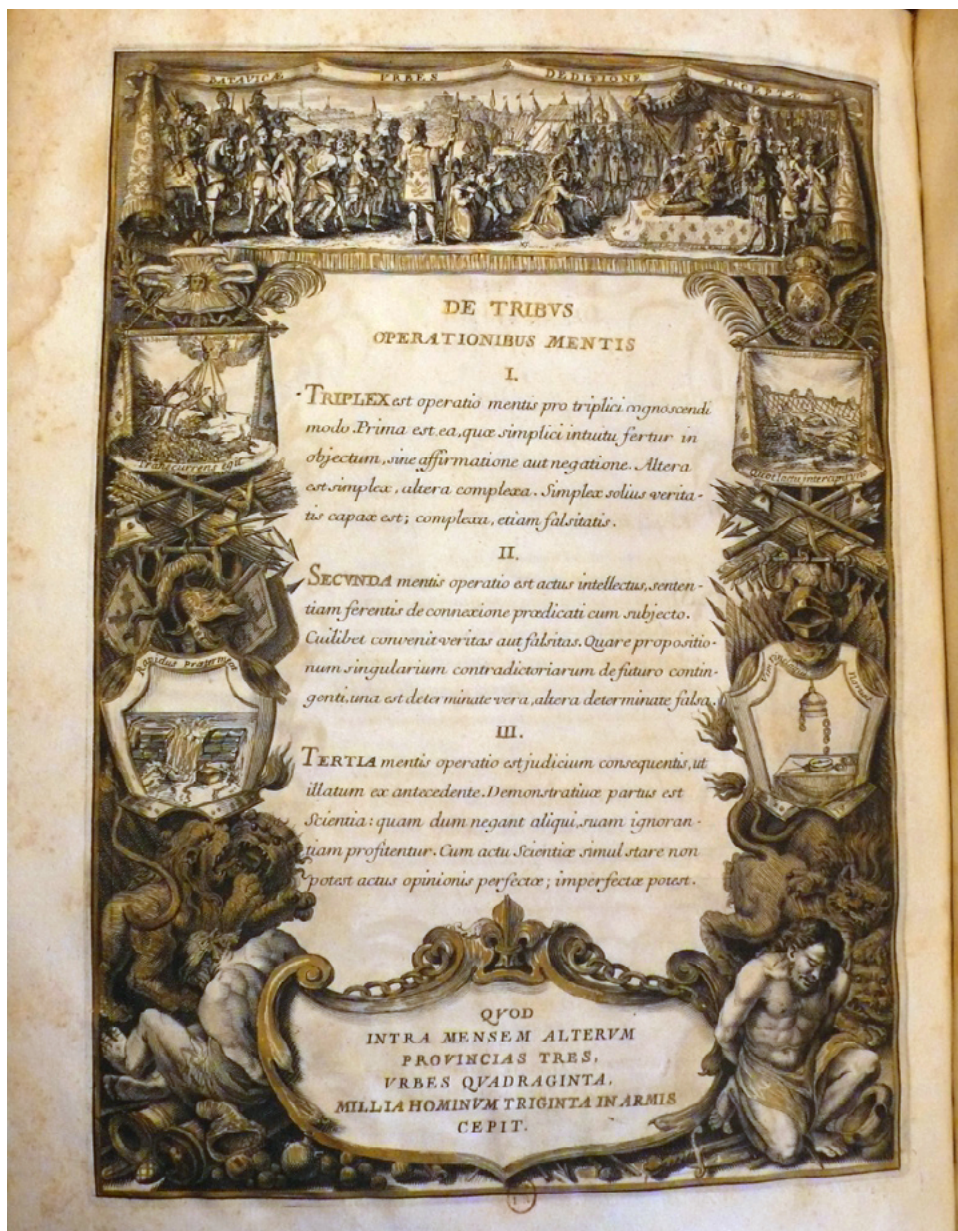 BATAVICÆ URBES DEDITIONE ACCEPTÆ
DE TRIBVS
OPERATIONIBUS MENTIS
I.
TRIPLEX est operatio mentis pro triplici cognoscendi
modo. Prima est ea, quæ simplici intuitu fertur in
objectum, sine affirmatione aut negatione. Altera
est simplex, altera complexa. Simplex solius verita-
tis capax est; complexa, etiam falsitatis.
II.
SECVNDA mentis operatio est actus intellectus, senten-
tiam ferentis de connexione prædicati cum subjecto.
Cuilibet convenit veritas aut falsitas. Quare propositio-
num singularium contradictoriarum de futuro contin-
genti, una est determinate vera, altera determinate falsa.
III.
TERTIA mentis operatio est judicium consequentis, ut
illatum ex antecedente. Demonstrativæ partus est
Scientia: quam dum negant aliqui, suam ignoran-
tiam profitentur. Cum actu Scientiæ simul stare non
potest actus opinionis perfectæ; imperfectæ potest.
Transcurrens egit
Rapidus
QVOD
INTRA MENSEM ALTERVM
PROVINCIAS TRES,
VRBES QVADRAGINTA,
MILLIA HOMINVM TRIGINTA IN ARMIS
CEPIT.